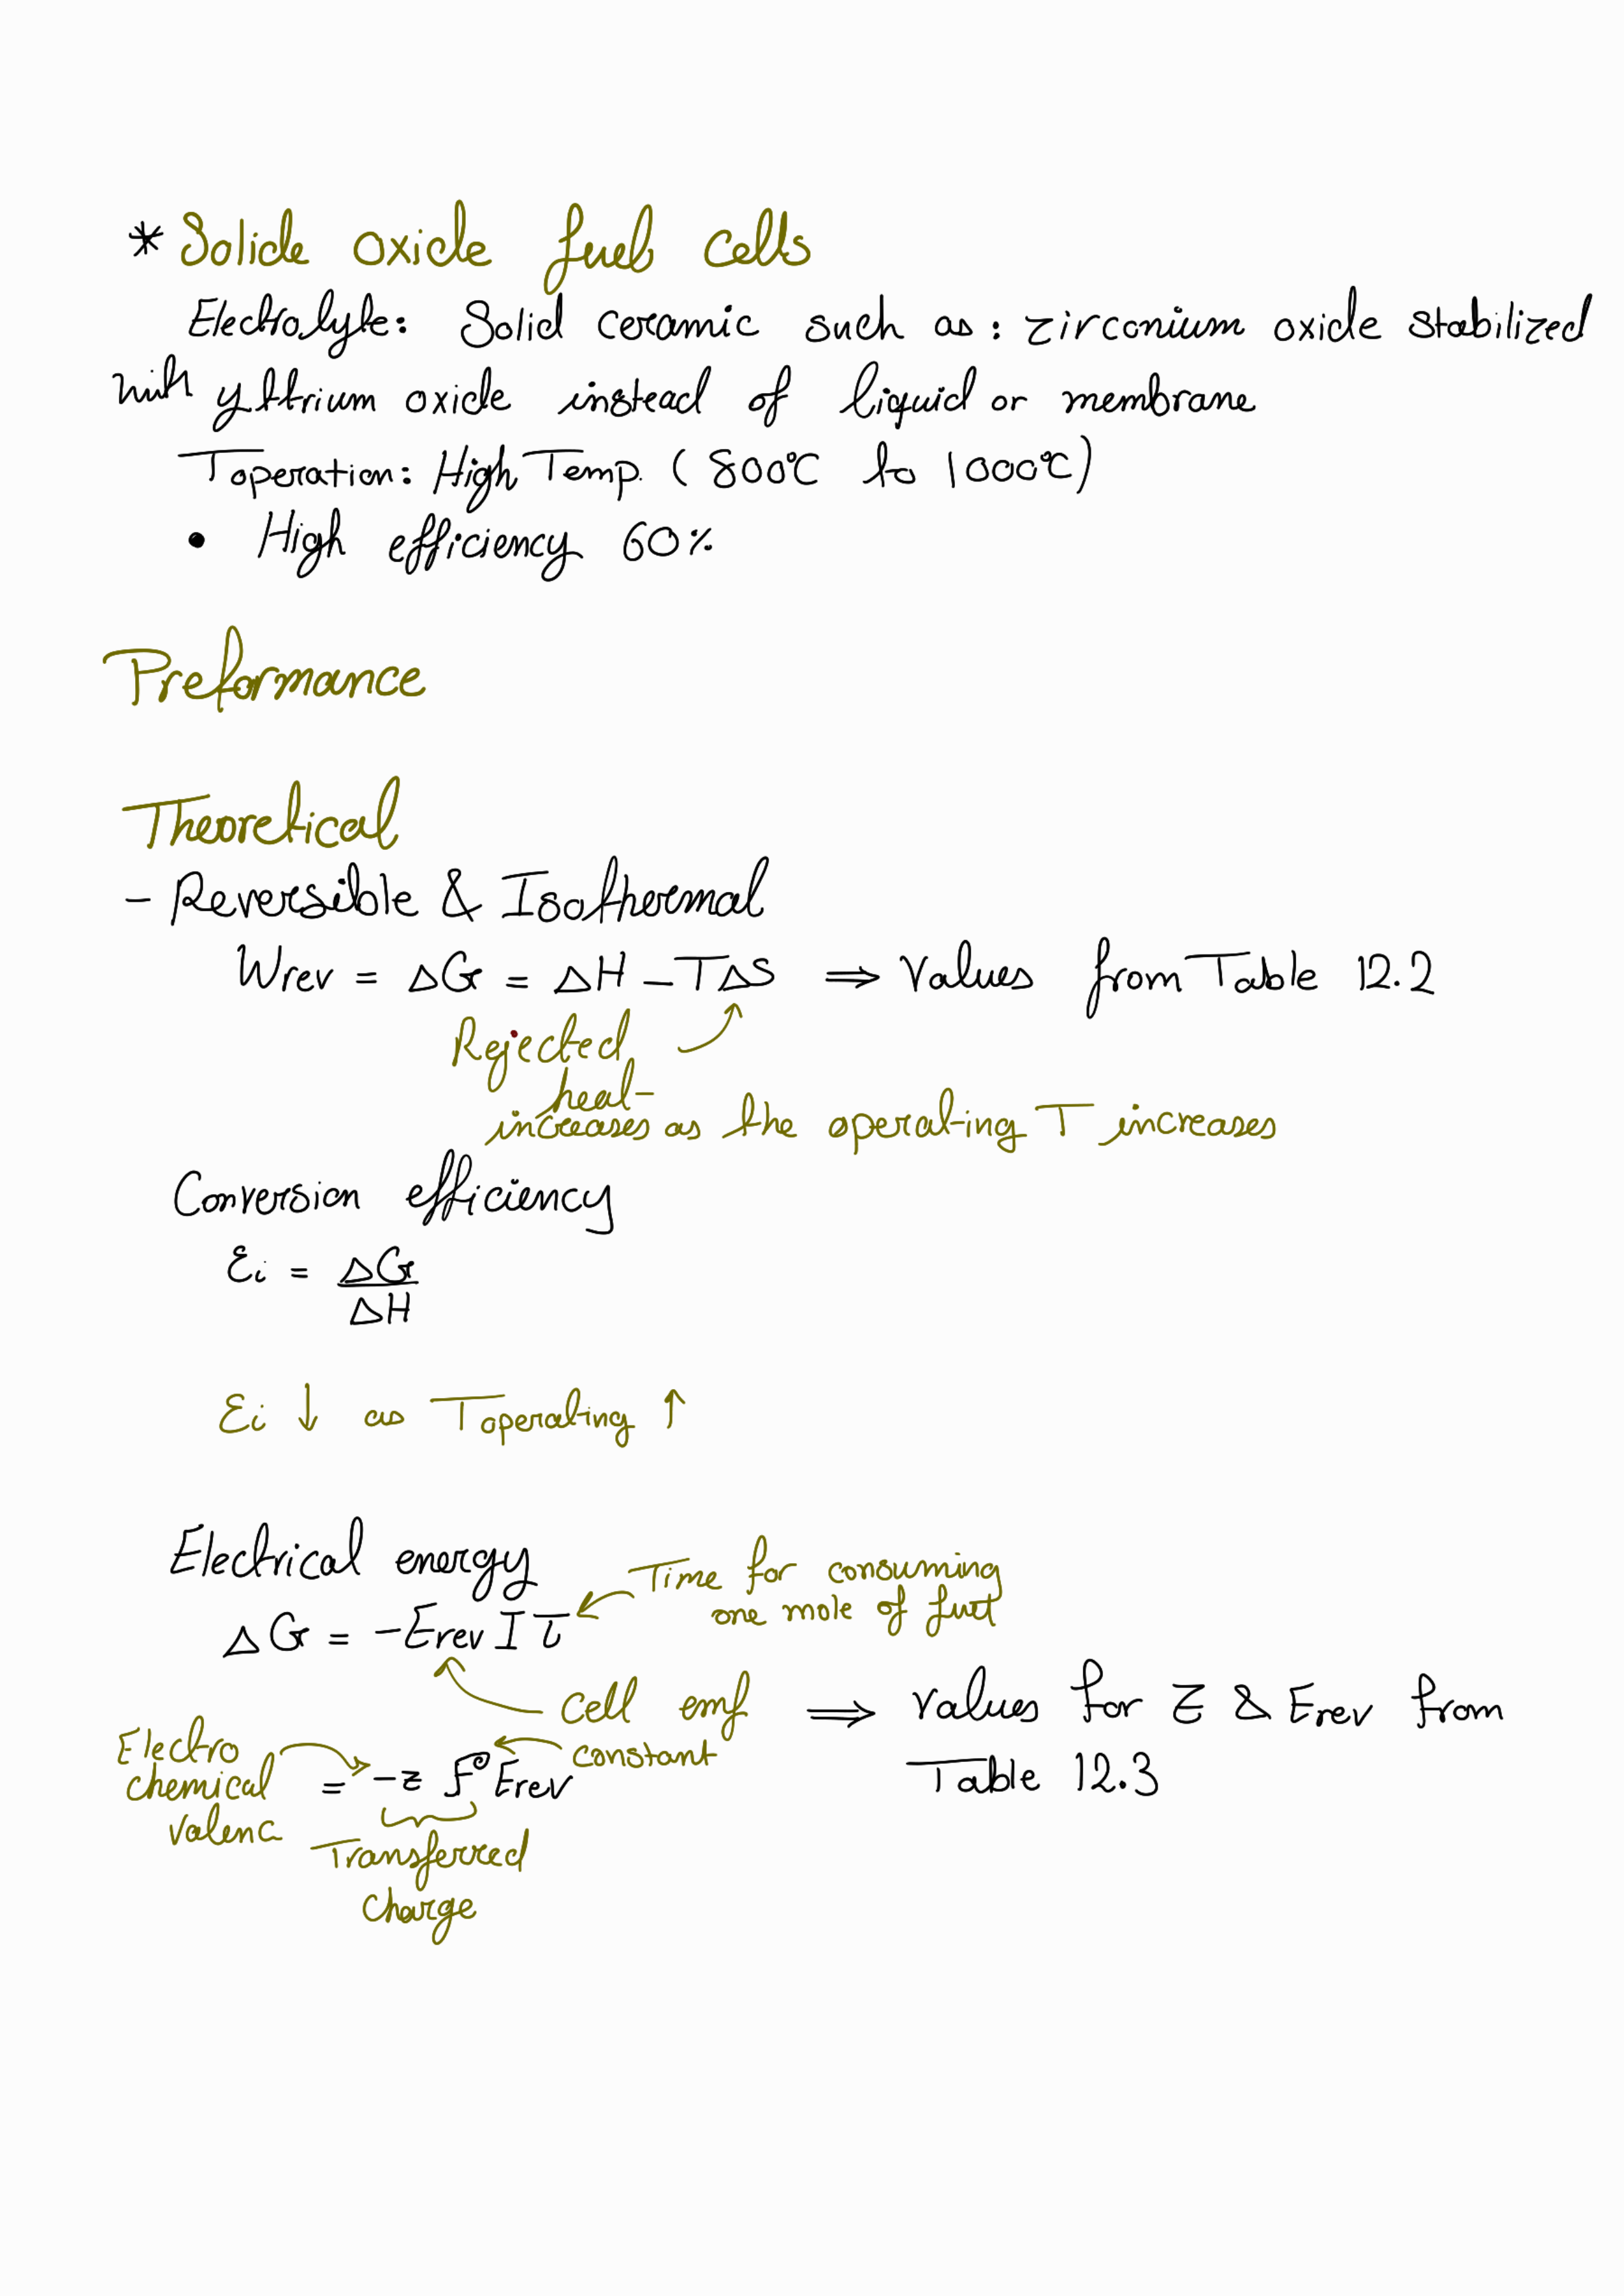 * Solide oxide fuel cells
Electrolyte: Solid ceramic such as: zirconium oxide stabilized
with yttrium oxide instead of liquid or membrane
Toperation: High Temp. (800°C to 1000°C)
• High efficiency 60%
Preformance
Theoretical
- Reversible & Isothermal
Wrev = ΔG = ΔH - TΔS ⇒ Values from Table 12.2
Rejected
heat
increases as the operating T increases
Conversion efficiency
Ɛi = ΔG
ΔH
Ɛi ↓ as Toperating ↑
Electrical energy
Time for consuming
one mole of fuel
ΔG = -Erev I τ
Cell emf ⇒ Values for Z & Erev from
Table 12.3
Electro
chemical
valenc
constant
= -z F Erev
Transferred
charge